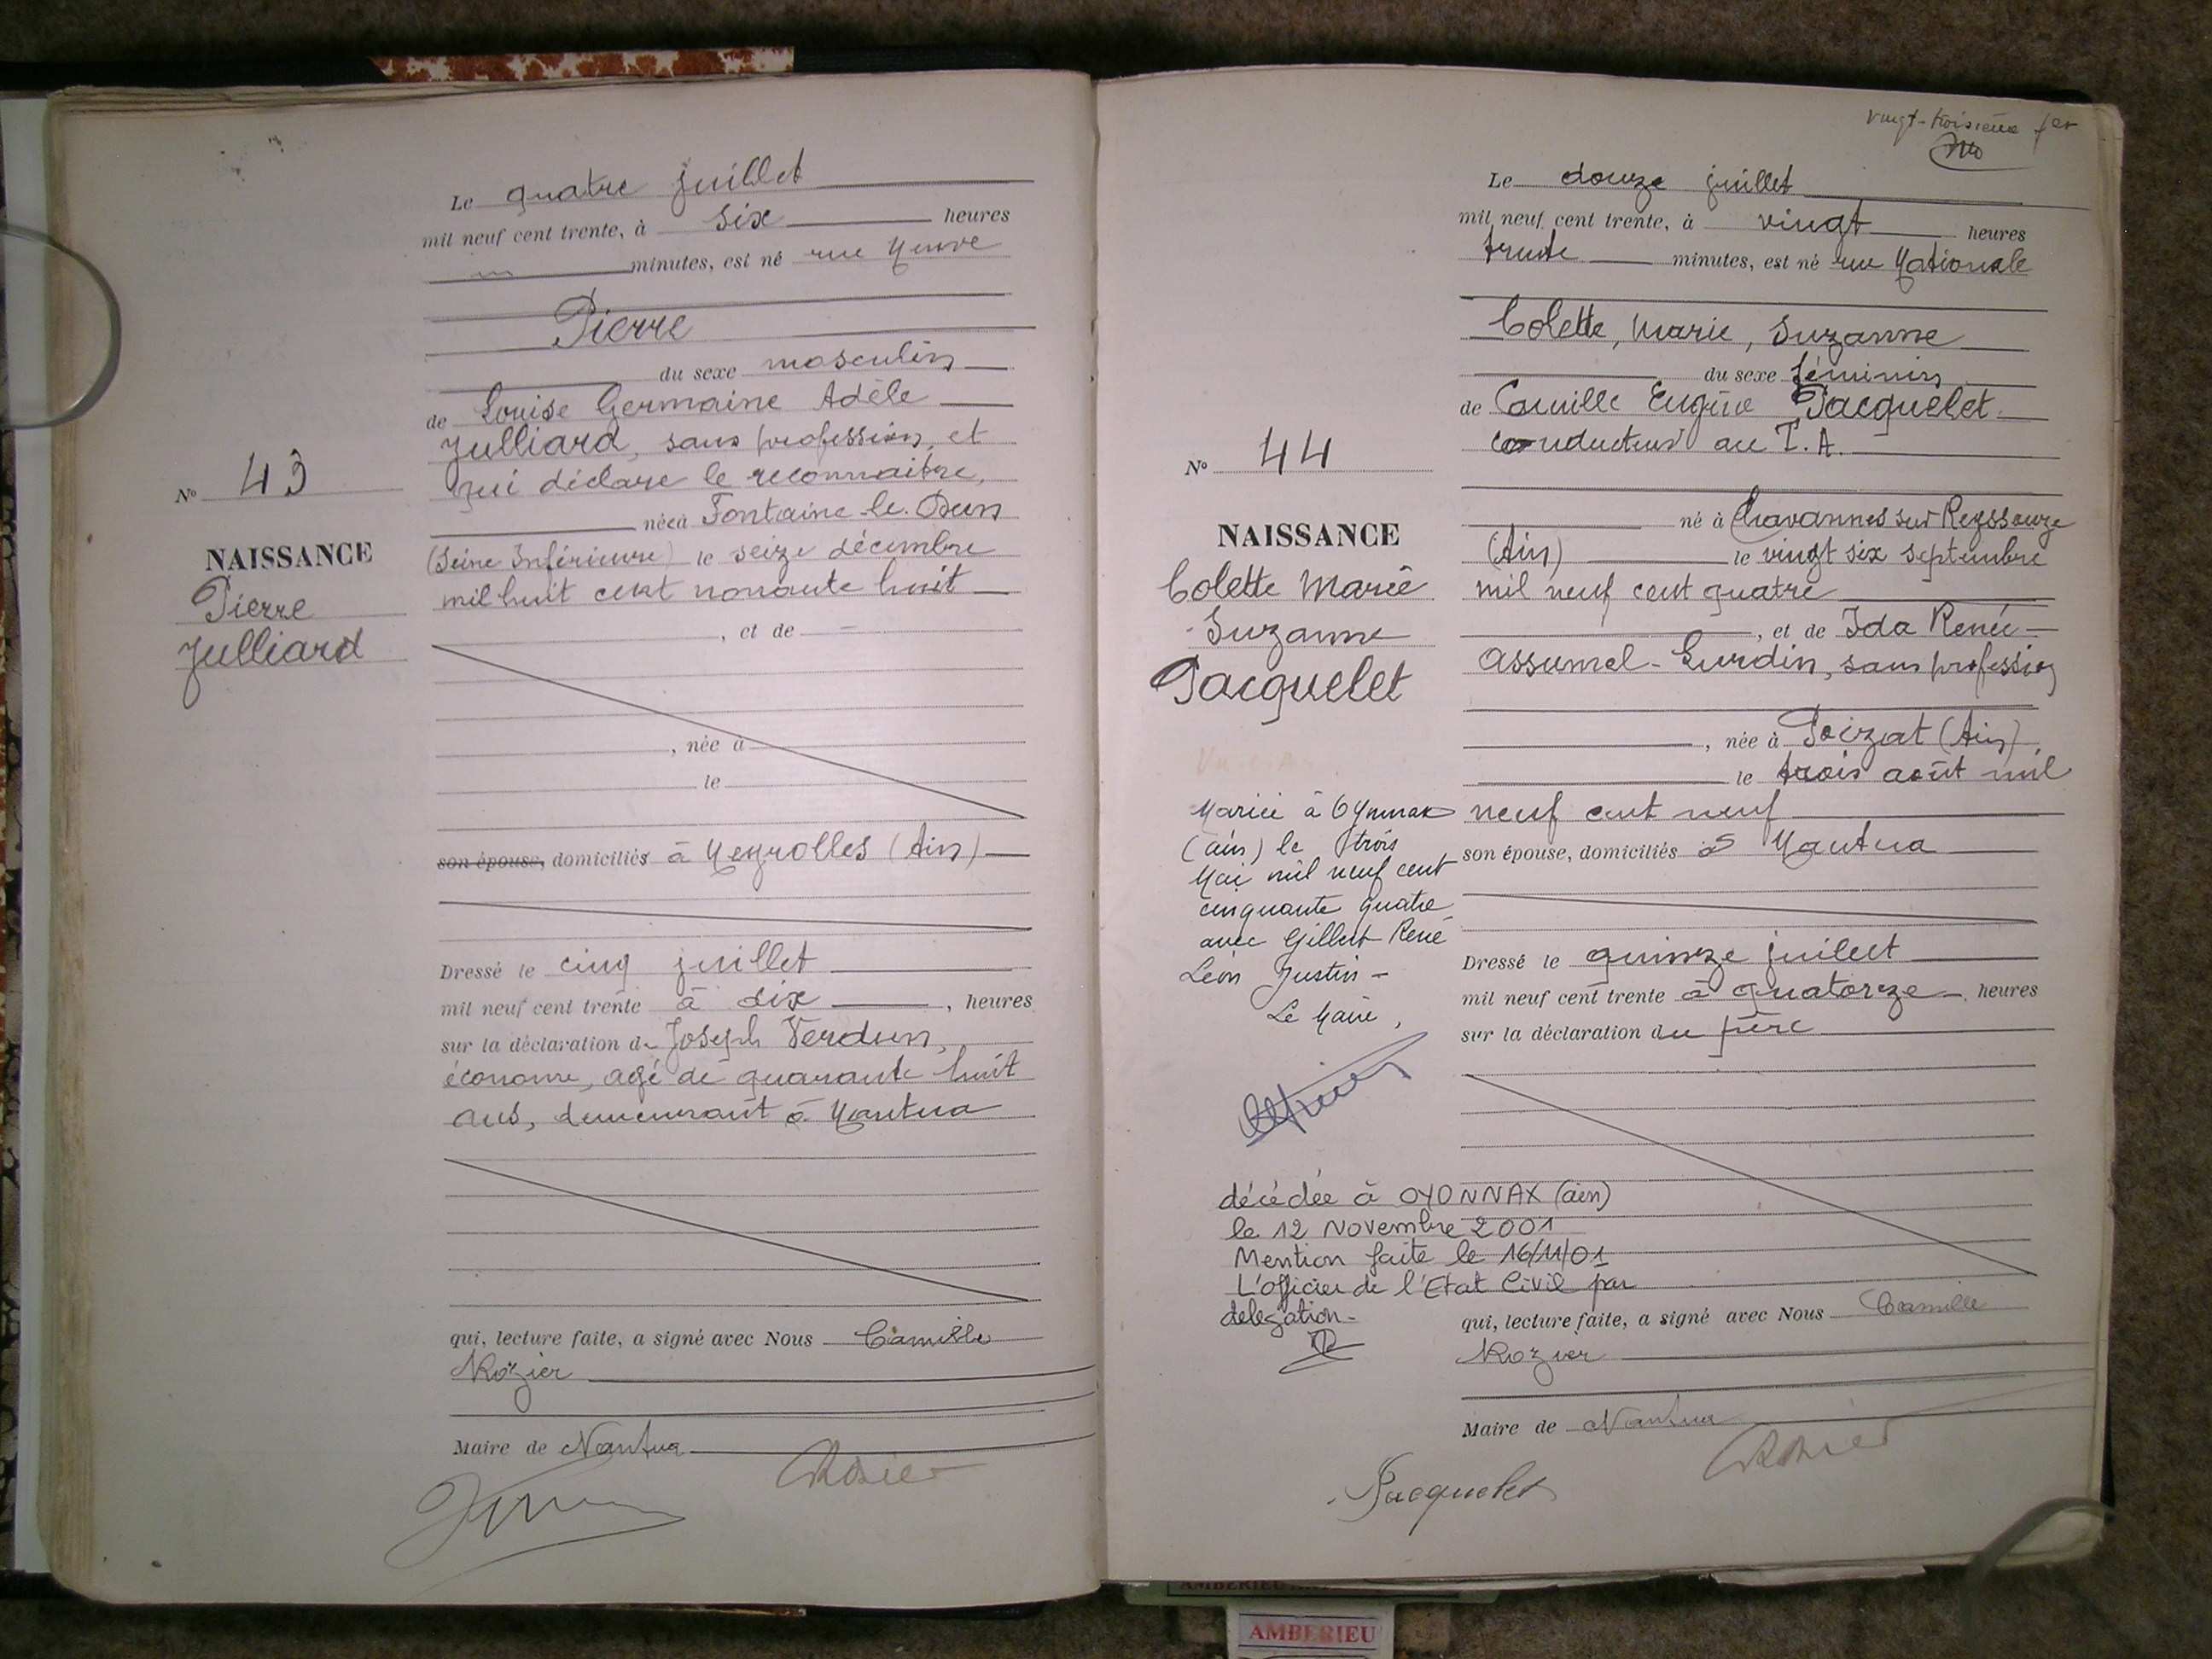 Le quatre juillet
mil neuf cent trente, à six heures
minutes, est né rue Neuve
Pierre
du sexe masculin
de Louise Germaine Adèle
Julliard, sans profession, et
qui déclare le reconnaitre,
née à Fontaine le Dun
(Seine Inférieure) le seize décembre
mil huit cent nonante huit
, et de
, née à
le
son épouse, domiciliés à Neyrolles (Ain)
Dressé le cinq juillet
mil neuf cent trente à dix , heures
sur la déclaration de Joseph Verdun,
économe, agé de quarante huit
ans, demeurant à Nantua
qui, lecture faite, a signé avec Nous Camille
Rozier
Maire de Nantua
Rozier
N° 43
NAISSANCE
Pierre
Julliard
vingt-troisième
Le douze juillet
mil neuf cent trente, à vingt heures
trente minutes, est né rue Nationale
Colette, Marie, Suzanne
du sexe féminin
de Camille Eugène Pacquelet
conducteur au T.A.
né à Chavannes sur Reyssouze
(Ain) le vingt six septembre
mil neuf cent quatre
, et de Ida Renée
Assumel-Lurdin, sans profession
, née à Poizat (Ain)
le trois août mil
neuf cent neuf
son épouse, domiciliés à Nantua
Dressé le quinze juillet
mil neuf cent trente à quatorze heures
sur la déclaration du père
qui, lecture faite, a signé avec Nous Camille
Rozier
Maire de Nantua
Pacquelet
Rozier
N° 44
NAISSANCE
Colette Marie
Suzanne
Pacquelet
Mariée à Oyonnax
(ain) le trois
Mai mil neuf cent
cinquante quatre
avec Gilbert René
Léon Justin -
Le Maire,
décédée à OYONNAX (ain)
le 12 Novembre 2001
Mention faite le 16/11/01
L'officier de l'Etat Civil par
delegation-
AMBERIEU
AMBERIEU